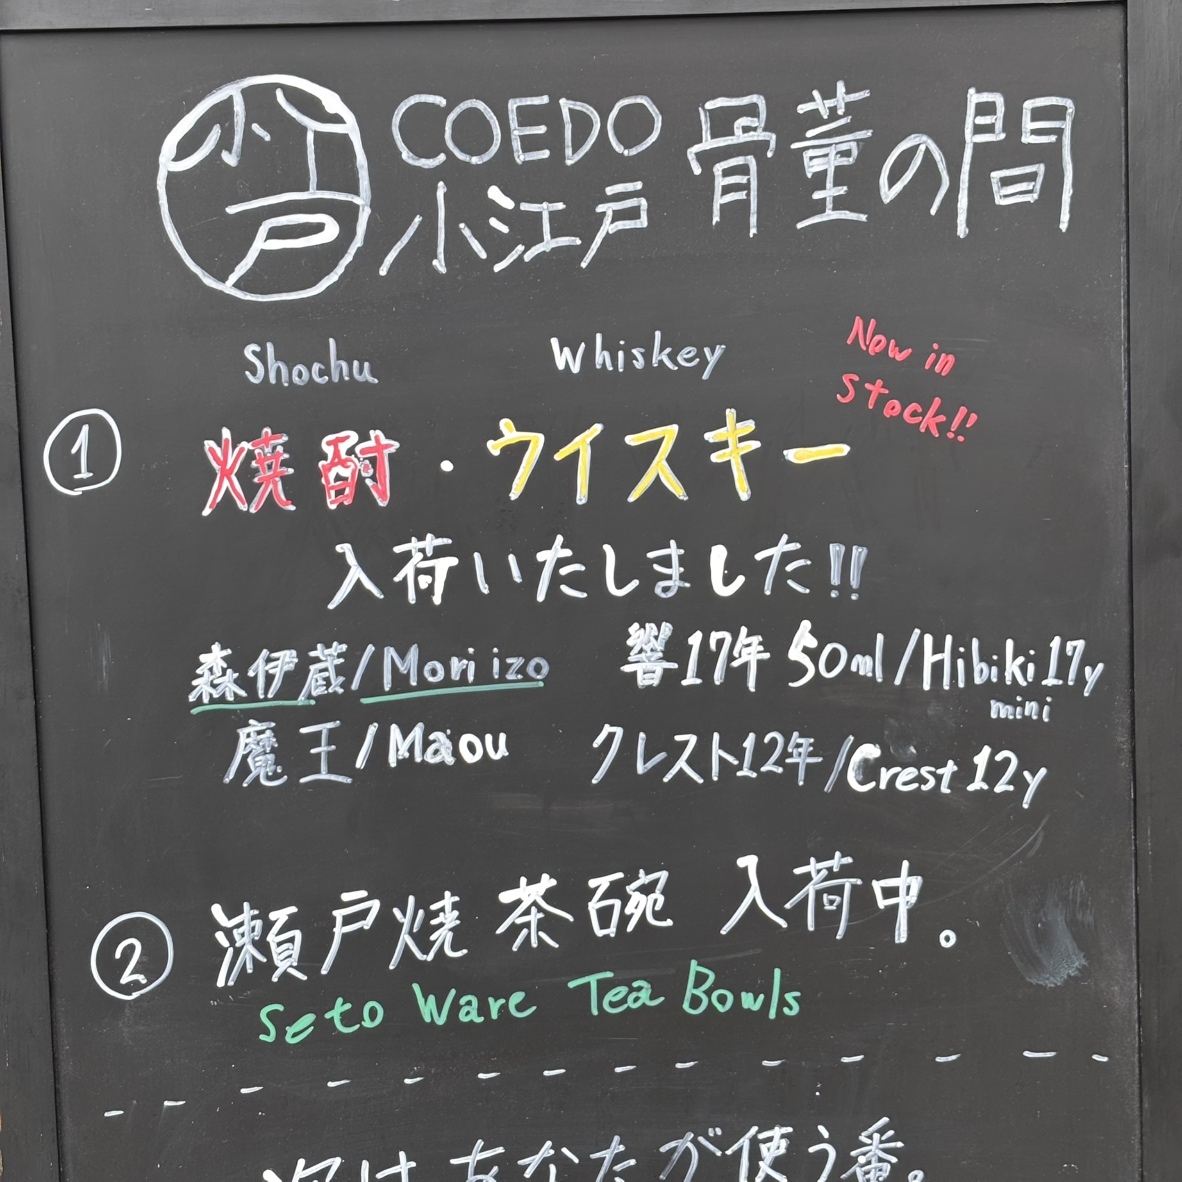 小江戸 COEDO 骨董の間
小江戸
Shochu Whiskey New in
stock!!
① 焼酎・ウイスキー
入荷いたしました!!
森伊蔵/Moriizo 響17年 50ml/Hibiki 17y
mini
魔王/Maou クレスト12年/Crest 12y
② 瀬戸焼 茶碗 入荷中。
Seto Ware Tea Bowls
次はあなたが使う番。